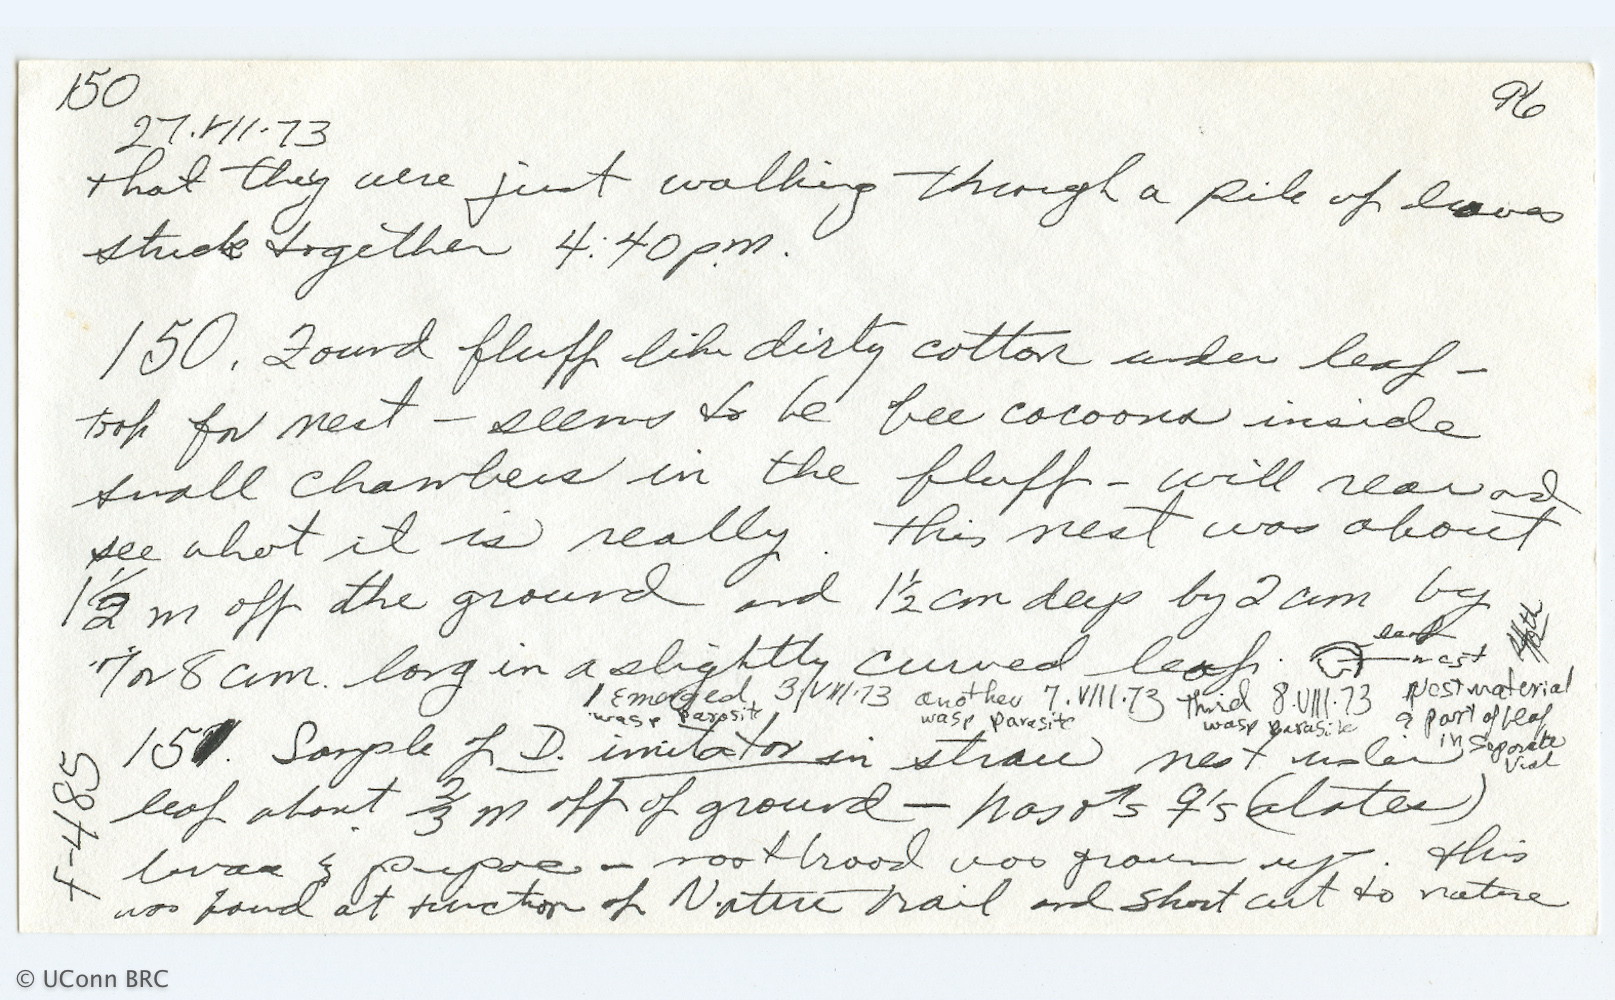 150
96
27.VII.73
that they were just walking through a pile of leaves
stuck together 4:40 p.m.
150. Found fluff like dirty cotton under leaf -
took for nest - seems to be bee cocoons inside
small chambers in the fluff - will rear and
see what it is really. This nest was about
1 1/2 m off the ground and 1 1/2 cm deep by 2 cm by
7 or 8 cm. long in a slightly curved leaf.
leaf
nest
1 Emerged 31/VII/73 another 7.VIII.73 third 8.VIII.73
wasp parasite wasp parasite wasp parasite
Nest material
& part of leaf
in separate
vial
151. Sample of D. imitator in straw nest under
leaf about 2/3 m off of ground - has ♂'s ♀'s (alates)
larvae & pupae - most brood was grown up. This
was found at junction of Nature trail and short cut to nature
F-485
© UConn BRC